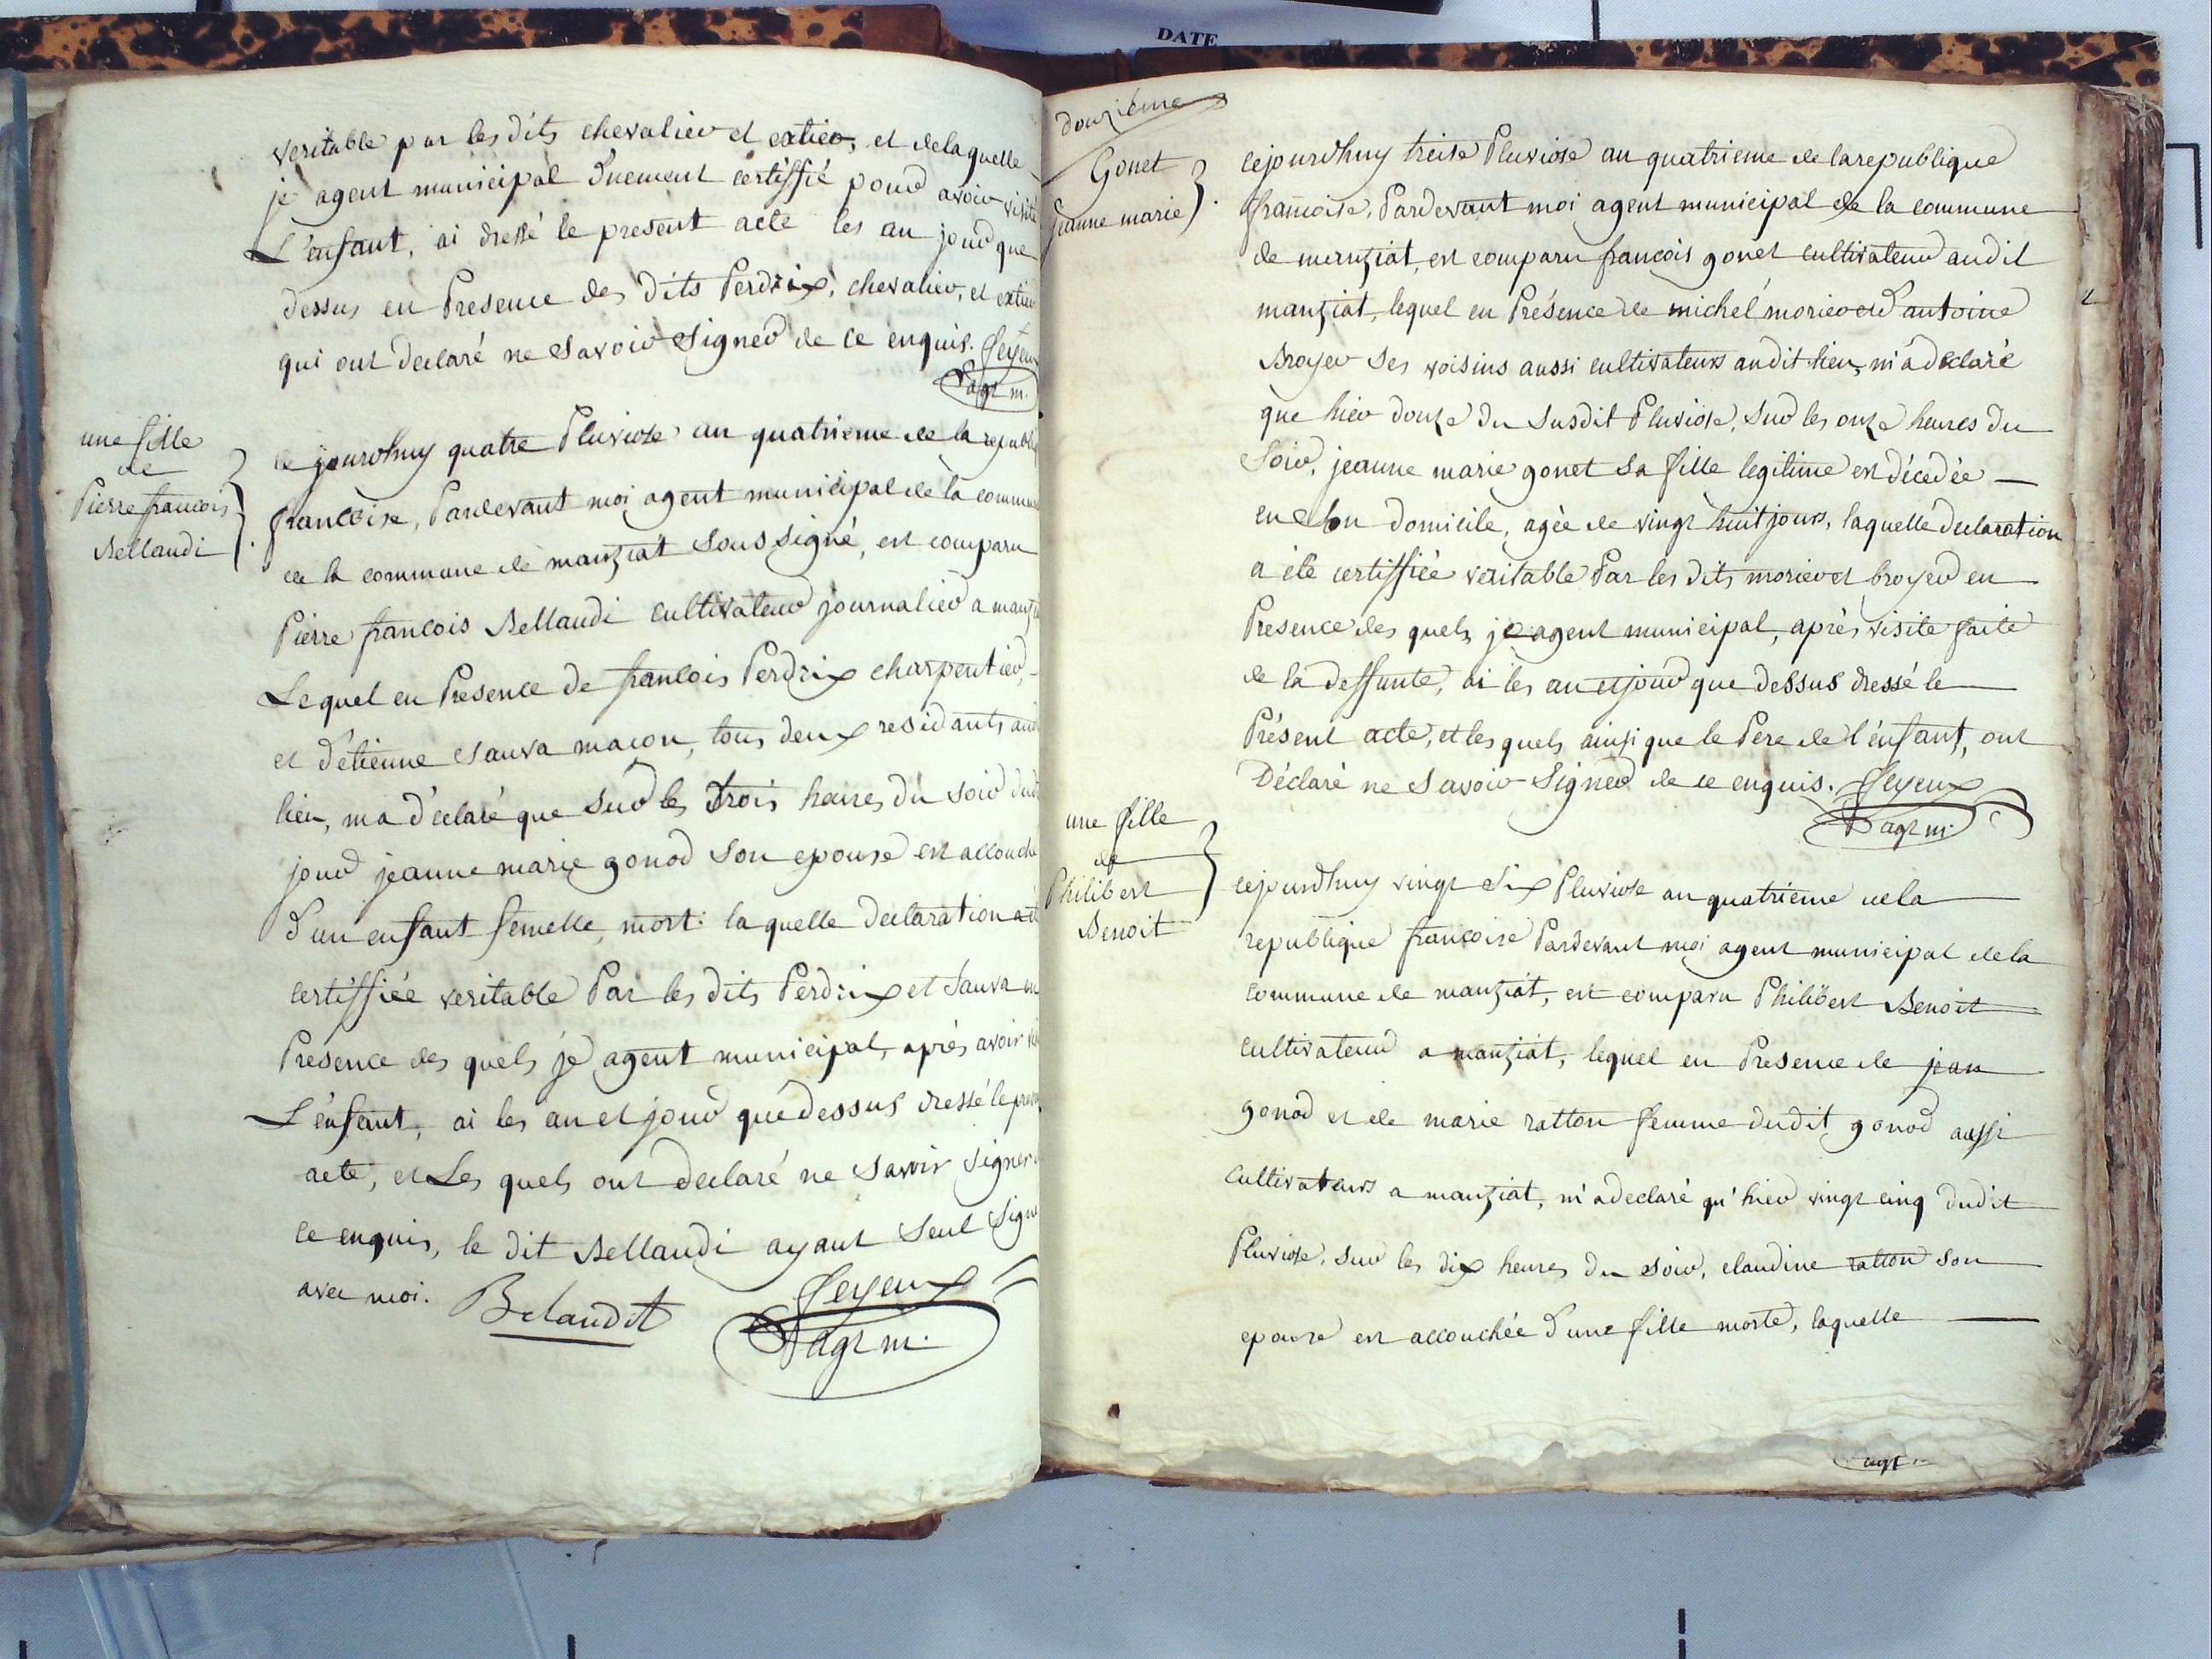 DATE
veritable par les dits chevalier et extier, et de laquelle
je agent municipal duement certiffié pour avoir visité
L'enfant, ai dressé le present acte les an jour que
dessus en Presence des dits Perdrix, chevalier, et extier
qui ont declaré ne savoir signer de ce enquis. feyeux
agt m.
une fille
de
Pierre francois
Bellandi
ce jourdhuy quatre Pluviose an quatrieme de la republi
francoise, Pardevant moi agent municipal de la commune
de la commune de manziat soussigné, est comparu
Pierre francois Bellandi cultivateur journalier a manz
Lequel en Presence de francois Perdrix charpentier,
et d'etienne sauva macon, tous deux residants aud
lieu, m'a déclaré que sur les trois heures du soir dud
jour jeanne marie gonod son epouse est accouché
d'un enfant femelle, mort. la quelle declaration a été
certiffiée veritable Par les dits Perdrix et sauva en
Presence des quels je agent municipal, après avoir
L'enfant, ai les an et jour que dessus dressé le pres
acte, et Les quels ont declaré ne savoir signer
ce enquis, le dit Bellandi ayant seul signé
avec moi. Belandit feyeux
agt m.
douzième
Gonet
jeanne marie
cejourdhuy treise Pluviose an quatrieme de la republique
francoise, Pardevant moi agent municipal de la commune
de manziat, est comparu francois gonet cultivateur audit
manziat, lequel en Présence de michel morier et d'antoine
Broyer ses voisins aussi cultivateurs audit lieu, m'a declaré
que hier douze du susdit Pluviose, sur les onze heures du
soir, jeanne marie gonet sa fille legitime est décedée
en son domicile, agée de vingt huit jours, laquelle declaration
a été certiffiée veritable Par les dits morier et broyer en
Presence des quels je agent municipal, après visite faite
de la deffunte, ai les an et jour que dessus dressé le
Présent acte, et les quels ainsi que le Pere de l'énfant, ont
Déclaré ne savoir signer de ce enquis. feyeux
agt m.
une fille
de
Philibert
Benoit
cejourdhuy vingt six Pluviose an quatrieme de la
republique francoise Pardevant moi agent municipal de la
commune de manziat, est comparu Philibert Benoit
cultivateur a manziat, lequel en Presence de jean
gonod et de marie ratton femme dudit gonod aussi
cultivateurs a manziat, m'a declaré qu'hier vingt cinq dudit
Pluviose, sur les dix heures du soir, claudine ratton son
epouse est accouchée d'une fille morte, laquelle